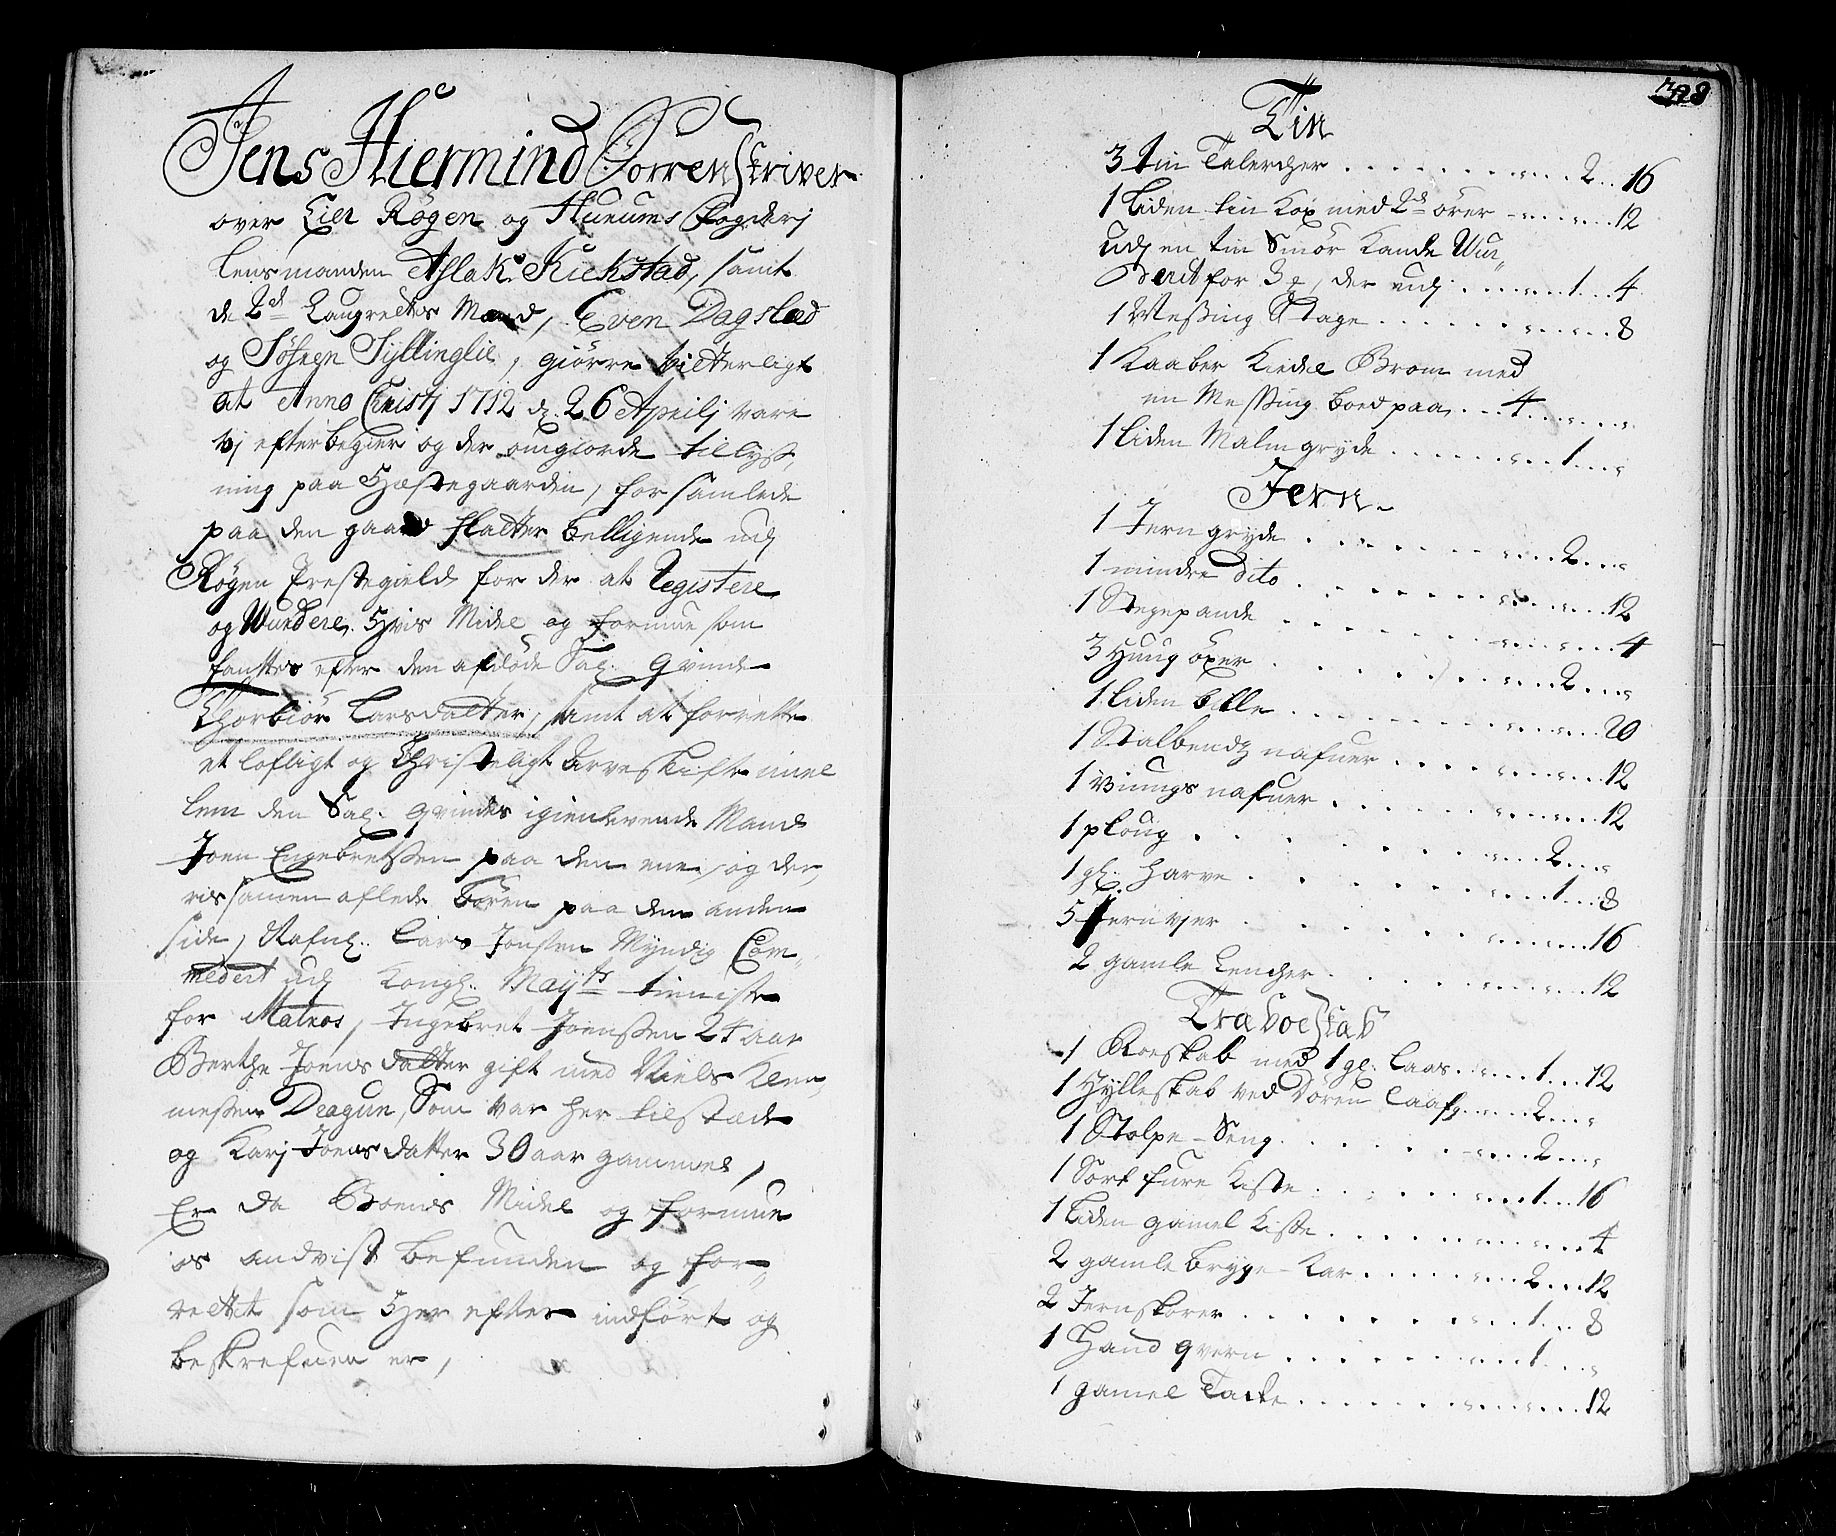 Jens Hiermind Sorrenskriver
over Lier Røgen og Hurums Fogderj
Lensmanden Aslak Kiekstad, samt
de 2de Laugrettes Mænd, Even Dagslad
og Søfren Syllinglie, giørre vitterligt
at Anno Christj 1712 d. 26 Aprilj vare
vj efter begier og der omgiorde tillyß,
ning paa Hæstegaarden, forsamlede
paa den gaard Slatter belligende udj
Røgen Prestegield for der at Registere
og Wurdere hvis Midel og formue som
fantes efter den afdøde Sal. qvinde
Thorbiør Larsdatter, samt at forrette
et lofligt og Christeligt Arveskifte imel
lem den Sal. qvindes igienlevende Mand
Joen Engebretßen paa den ene, og der,
ris samen aflede børen paa den anden
side, Nafnl. Lars Jonsen Myndig Com,
medert udj Kongl. Mayts tieniste
for Matros, Ingebret Joenßen 24 aar
Berthe Joensdatter gift med Niels Klem,
meßen Dragun, Som var her tilstæde
og Karj Joensdatter 30 aar gammel,
Er da Boends Midel og formue
os andvist befunden og for,,
rettet som her efter indført og
beskrefuen er,
728
Tin
3 tin Talercher 2 16
1 Liden tin Kop med 2de ører 12
udj en tin Smør Kande Wur,,
derit for 3 , der udj 1 4
1 Meßing Stage 8
1 Kaaber Kiedel Brom med
en Meßing boed paa 4
1 Liden Malm gryde 1
Jern
1 Jern gryde 2
1 mindre dito 12
1 Stegepande 4
3 Hung øxer 2
1 Liden bille 20
1 Stalbendz nafuer 12
1 Viungs nafuer 12
1 ploug 2
1 gl. Harve 1 8
5 Jernvier 16
2 gamle Lencher 12
Træboeskab
1 Roeskab med 1 gl. Laas 1 12
1 Hylleskab ved Døren Laaß 2
1 Stolpe-Seng 2
1 Sort fure Kiste 1 16
1 Liden gamel Kiste 4
2 gamle bryge-Kar 2 12
2 Jernskorer 1 8
1 Hand qvern 1
1 gamel Tacke 12